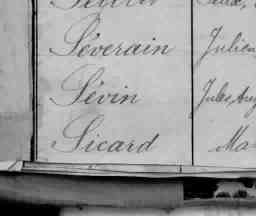 Séverain Julien
Sévin Jules, Aug
Sicard Ma